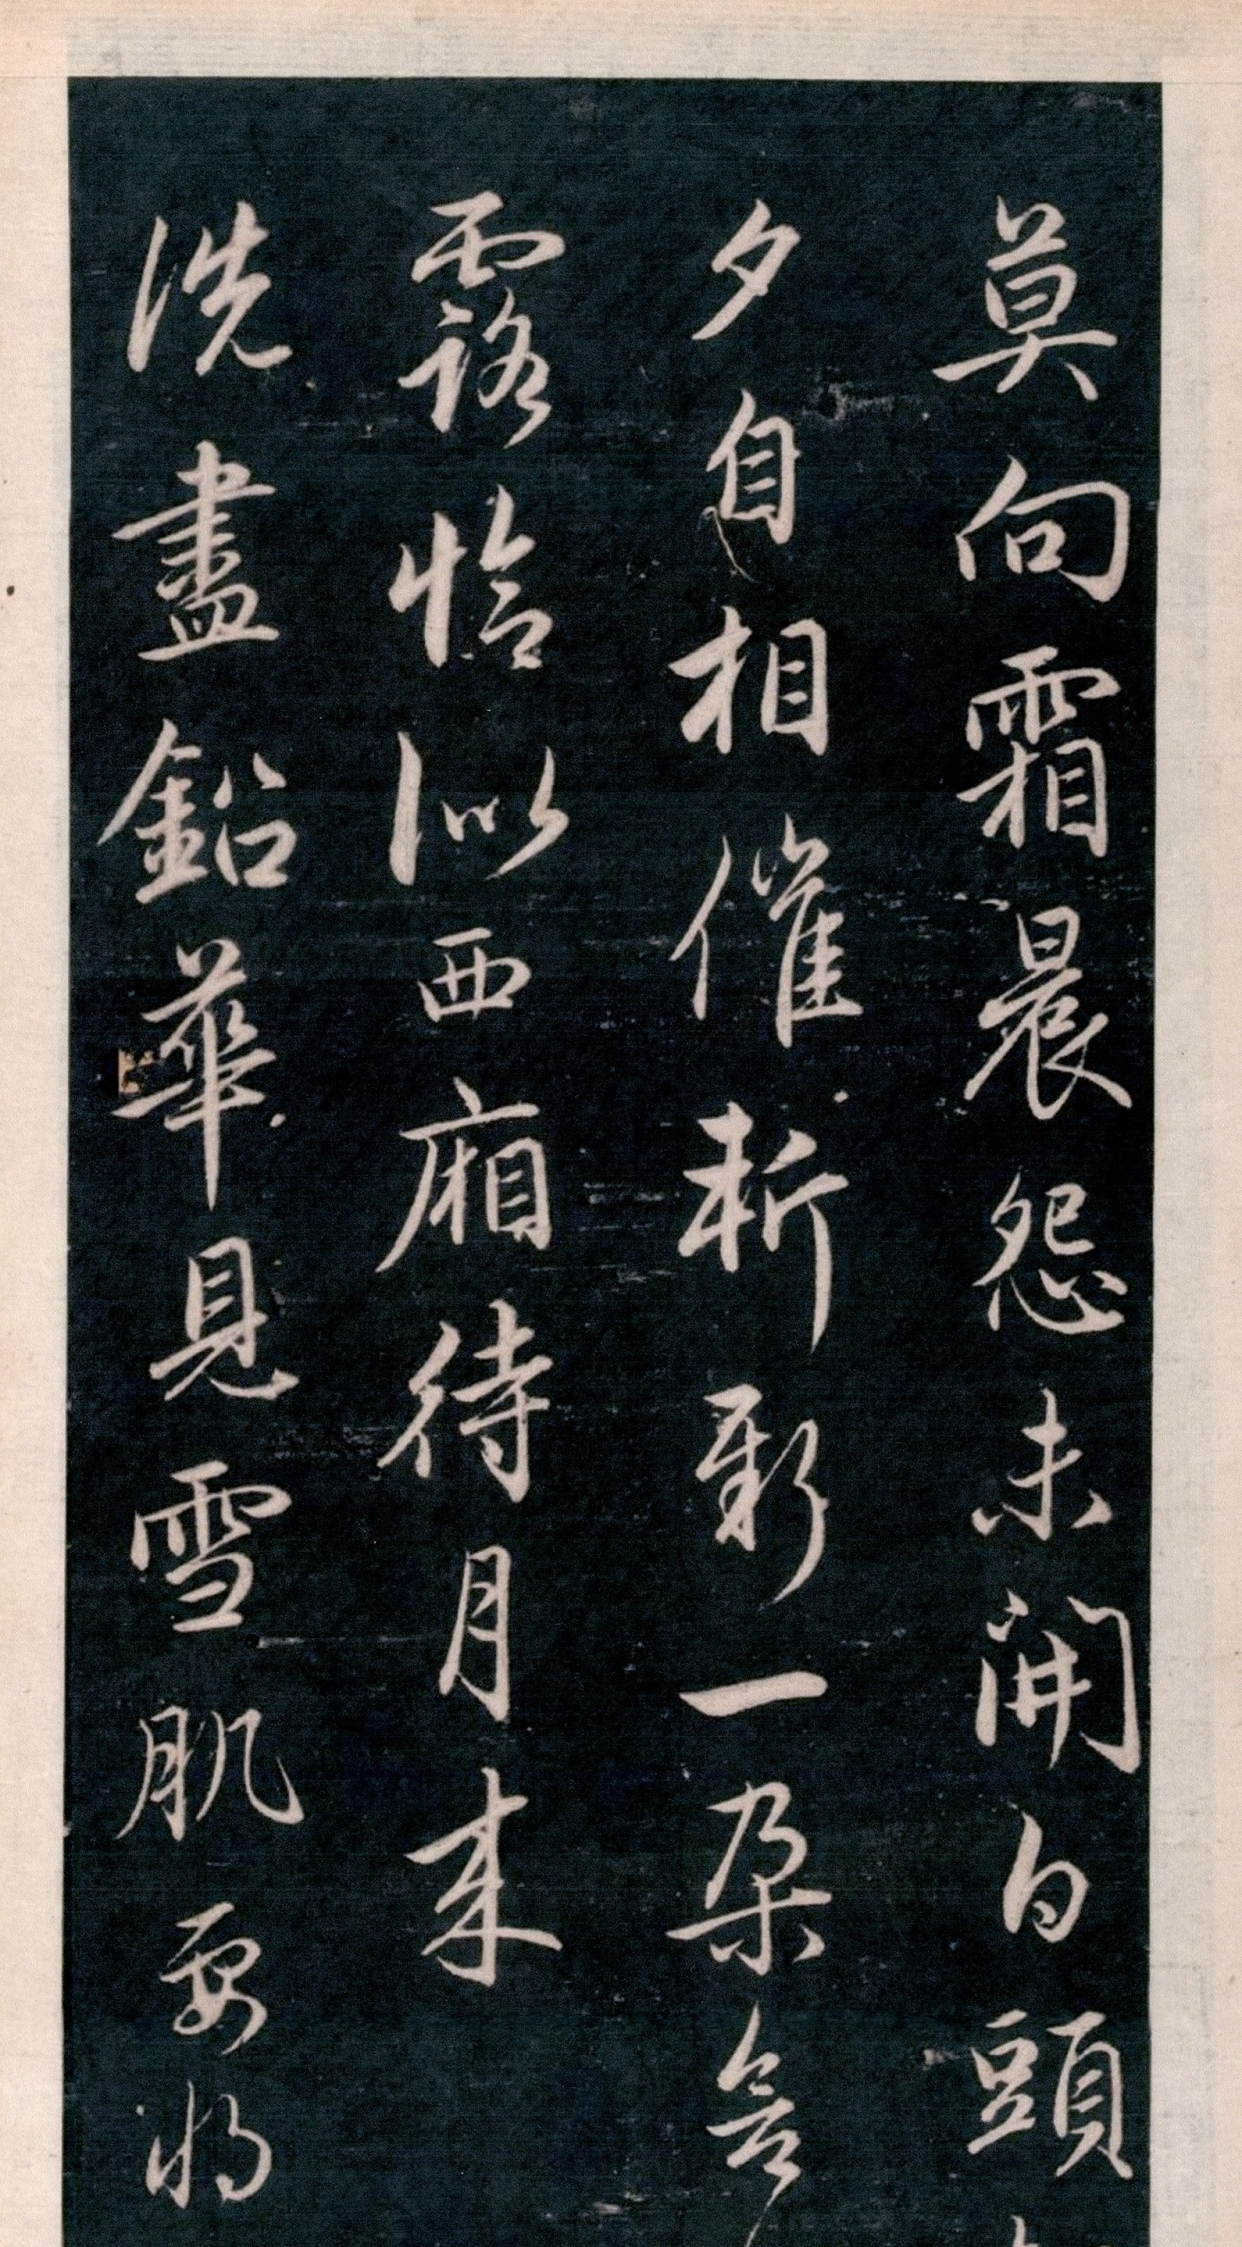 莫向霜晨怨未開白頭
夕自相催斬新一朵含
露恰似西廂待月來
洗盡鉛華見雪肌要將